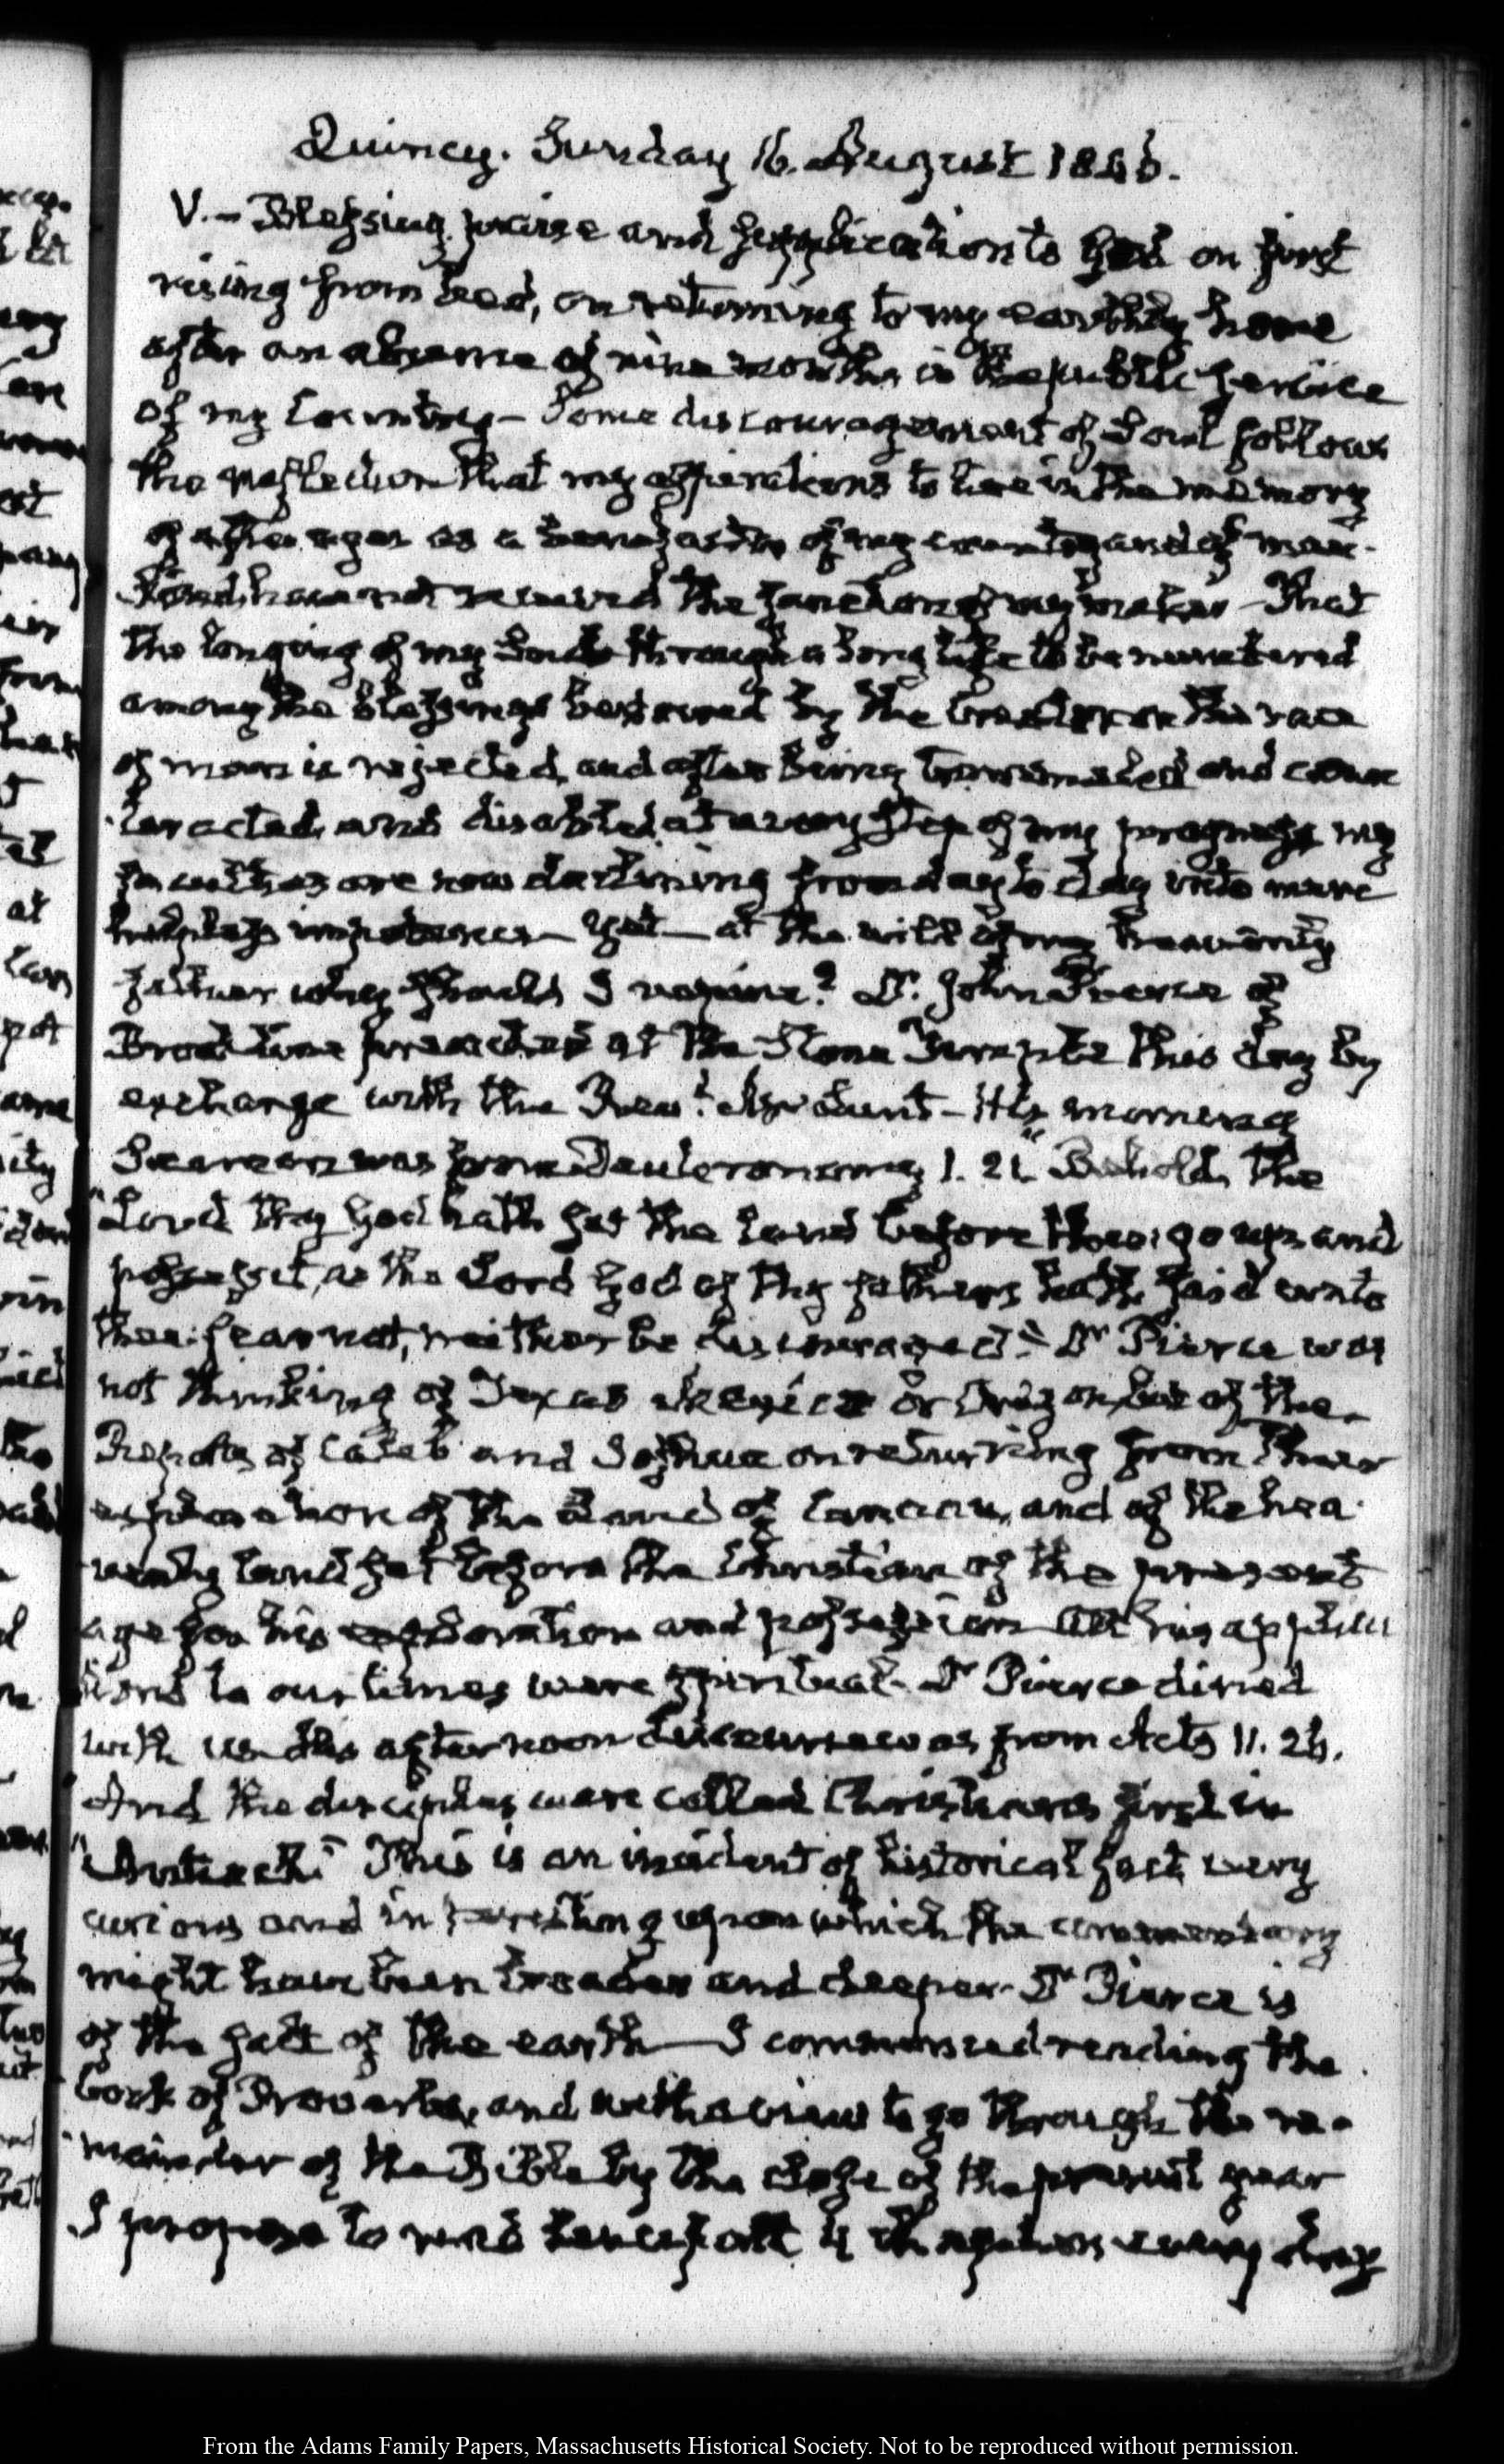 Quincy. Sunday 16. August 1846.
V.— Blessing, praise and supplication to God on first
rising from bed, on returning to my earthly home
after an absence of nine months in the public service
of my Country— Some discouragement of Soul follows
the reflection that my aspirations to live in the memory
of after ages as a benefactor of my country and of man-
kind, have not received the sanction of my maker— That
the longing of my Soul through a long life to be numbered
among the blessings bestowed by the Creator on the race
of man is rejected, and after being and coun
teracted, and disabled at every step of my progress my
faculties are now declining from day to day into mere
helpless impotence— Yet— at the will of my heavenly
father why should I repine? Dr. John Pierce of
Brookline preached at the Stone Temple this day by
exchange with the Revd. Mr Lunt— His morning
Sermon was from Deuteronomy 1. 21. "Behold, the
"Lord thy God hath set the land before thee; go up and
possess it, as the Lord God of thy fathers hath said unto
thee: fear not, neither be discouraged." Dr Pierce was
not thinking of Texas Mexico or Oregon, but of the
Reports of Caleb and Joshua on returning from their
exploration of the Land of Canaan, and of the hea
venly land set before the Christian of the present
age for his exploration and possession— All his applica
tions to our times were spiritual. Dr Pierce dined
with us— his afternoon discourse was from Acts 11. 26.
And the disciples were called Christians first in
"Antioch." This is an incident of historical fact, very
curious and interesting upon which the commentary
might have been broader and deeper— Dr Pierce is
of the salt of the earth— I commenced reading the
book of Proverbs, and with a view to go through the re-
mainder of the Bible by the close of the present year
I propose to read henceforth 4 chapters every day